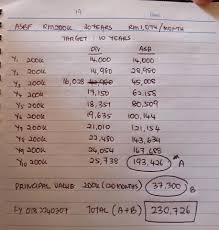 ASBF RM200K 30 YEARS RM1,074/MONTH
TARGET : 10 YEARS
DIV ASB
Y1 200K 14,000 14,000
Y2 200K 14,980 28,980
Y3 200K 16,028 45,008
Y4 200K 17,150 62,158
Y5 200K 18,351 80,509
Y6 200K 19,635 100,144
Y7 200K 21,010 121,154
Y8 200K 22,480 143,634
Y9 200K 24,054 167,688
Y10 200K 25,738 193,426 A
PRINCIPAL VALUE 200K (120 MONTHS) 37,300 B
TOTAL (A+B) 230,726